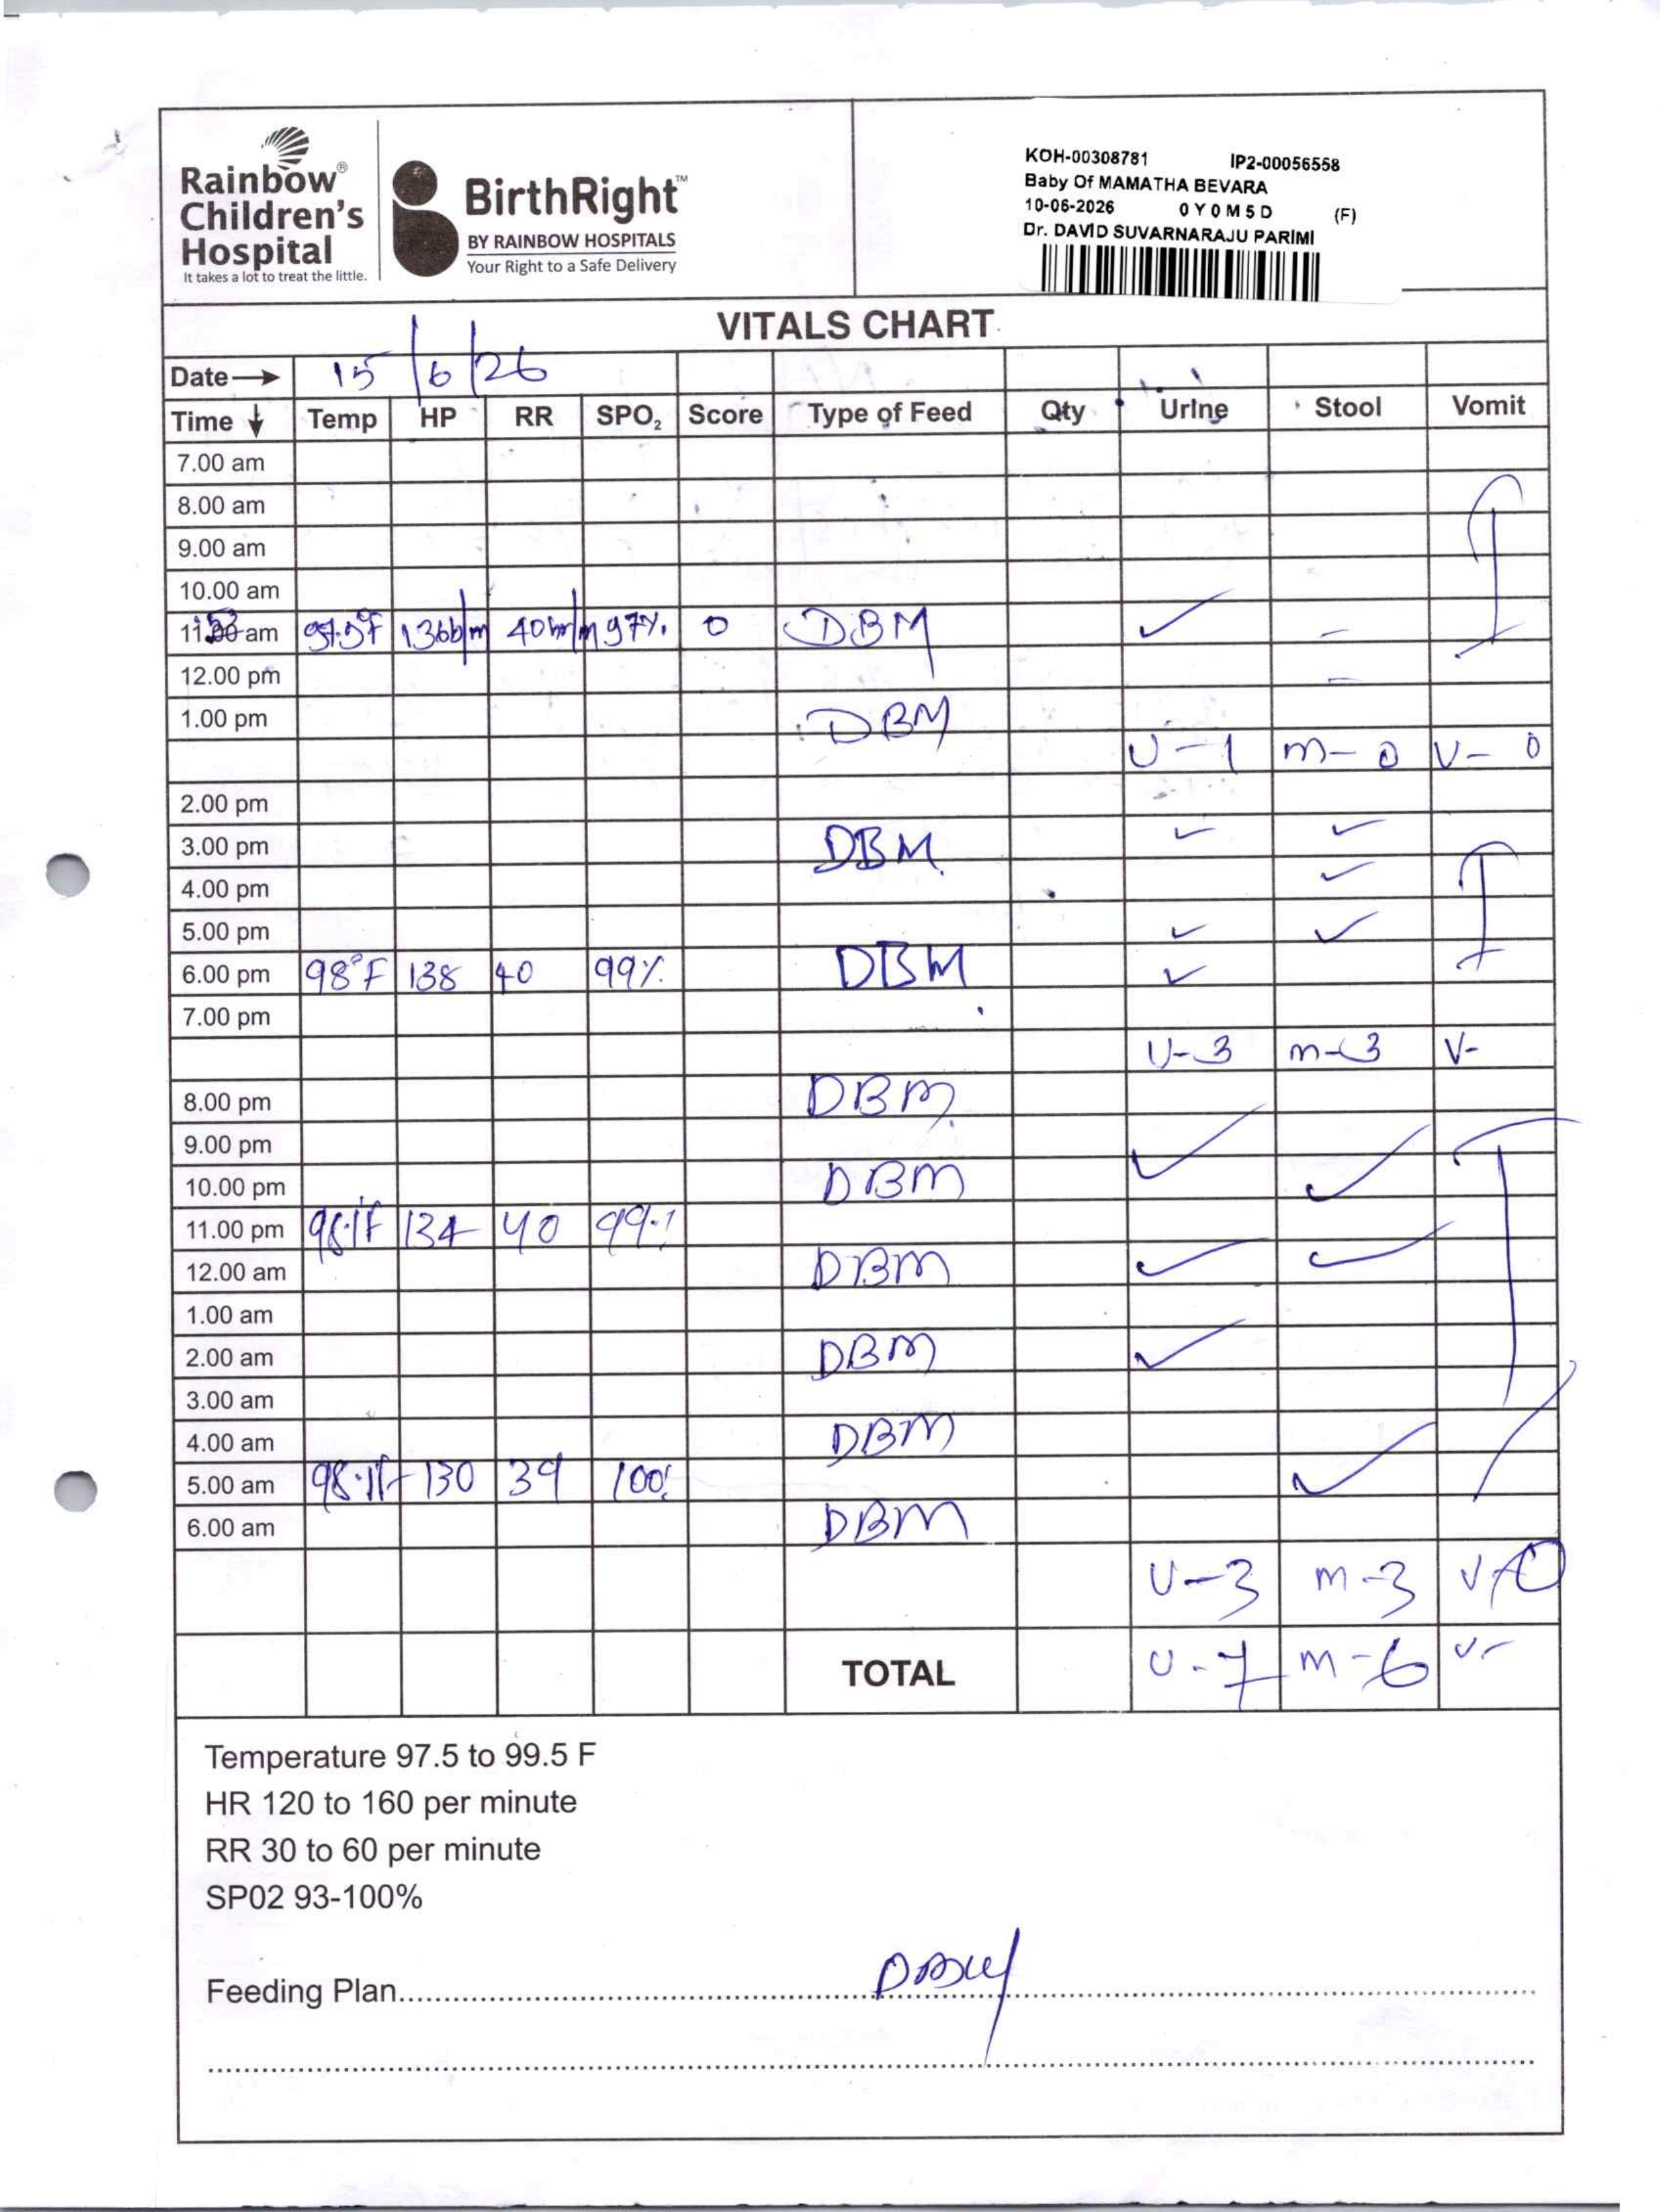 Rainbow®
Children's
Hospital
It takes a lot to treat the little.
BirthRight™
BY RAINBOW HOSPITALS
Your Right to a Safe Delivery
KOH-00308781 IP2-00056558
Baby Of MAMATHA BEVARA
10-06-2026 0Y0M5D (F)
Dr. DAVID SUVARNARAJU PARIMI
VITALS CHART
Date→ 15/6/26
Time ↓ Temp HP RR SPO₂ Score Type of Feed Qty Urine Stool Vomit
7.00 am
8.00 am
9.00 am
10.00 am
am 136b/m 97% 0 DBM ✓ –
12.00 pm –
1.00 pm DBM
U-1 m-0 V-0
2.00 pm
3.00 pm DBM ✓ ✓
4.00 pm ✓
5.00 pm ✓ ✓
6.00 pm 98°F 138 40 99% DBM ✓
7.00 pm
U-3 m-3 V-
8.00 pm DBM
9.00 pm ✓
10.00 pm DBM ✓
11.00 pm 98.1F 134 40 99%
12.00 am DBM ✓ ✓
1.00 am
2.00 am DBM ✓
3.00 am
4.00 am DBM
5.00 am 98.1F 130 39 100% ✓
6.00 am DBM
U-3 m-3 V-0
TOTAL U-7 m-6 V-
Temperature 97.5 to 99.5 F
HR 120 to 160 per minute
RR 30 to 60 per minute
SP02 93-100%
Feeding Plan